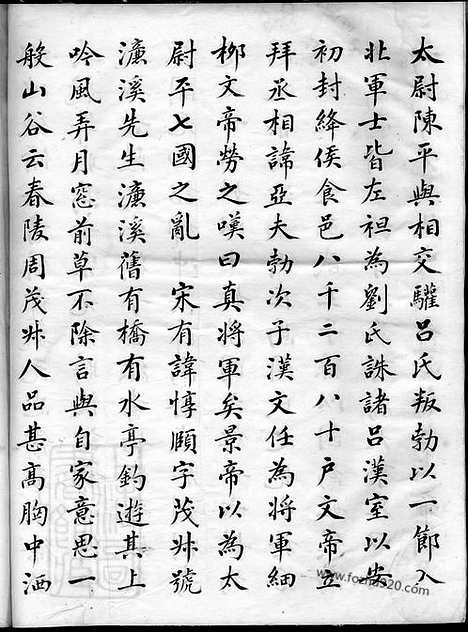 太尉陳平與相交驩呂氏叛勃以一節入
北軍士皆左袒為劉氏誅諸呂漢室以安
初封絳侯食邑八千二百八十戶文帝立
拜丞相諱亞夫勃次子漢文任為將軍細
柳文帝勞之嘆曰真將軍矣景帝以為太
尉平七國之亂　宋有諱惇頤字茂叔號
濂溪先生濂溪舊有橋有水亭釣遊其上
吟風弄月窓前草不除言與自家意思一
般山谷云春陵周茂叔人品甚高胸中洒